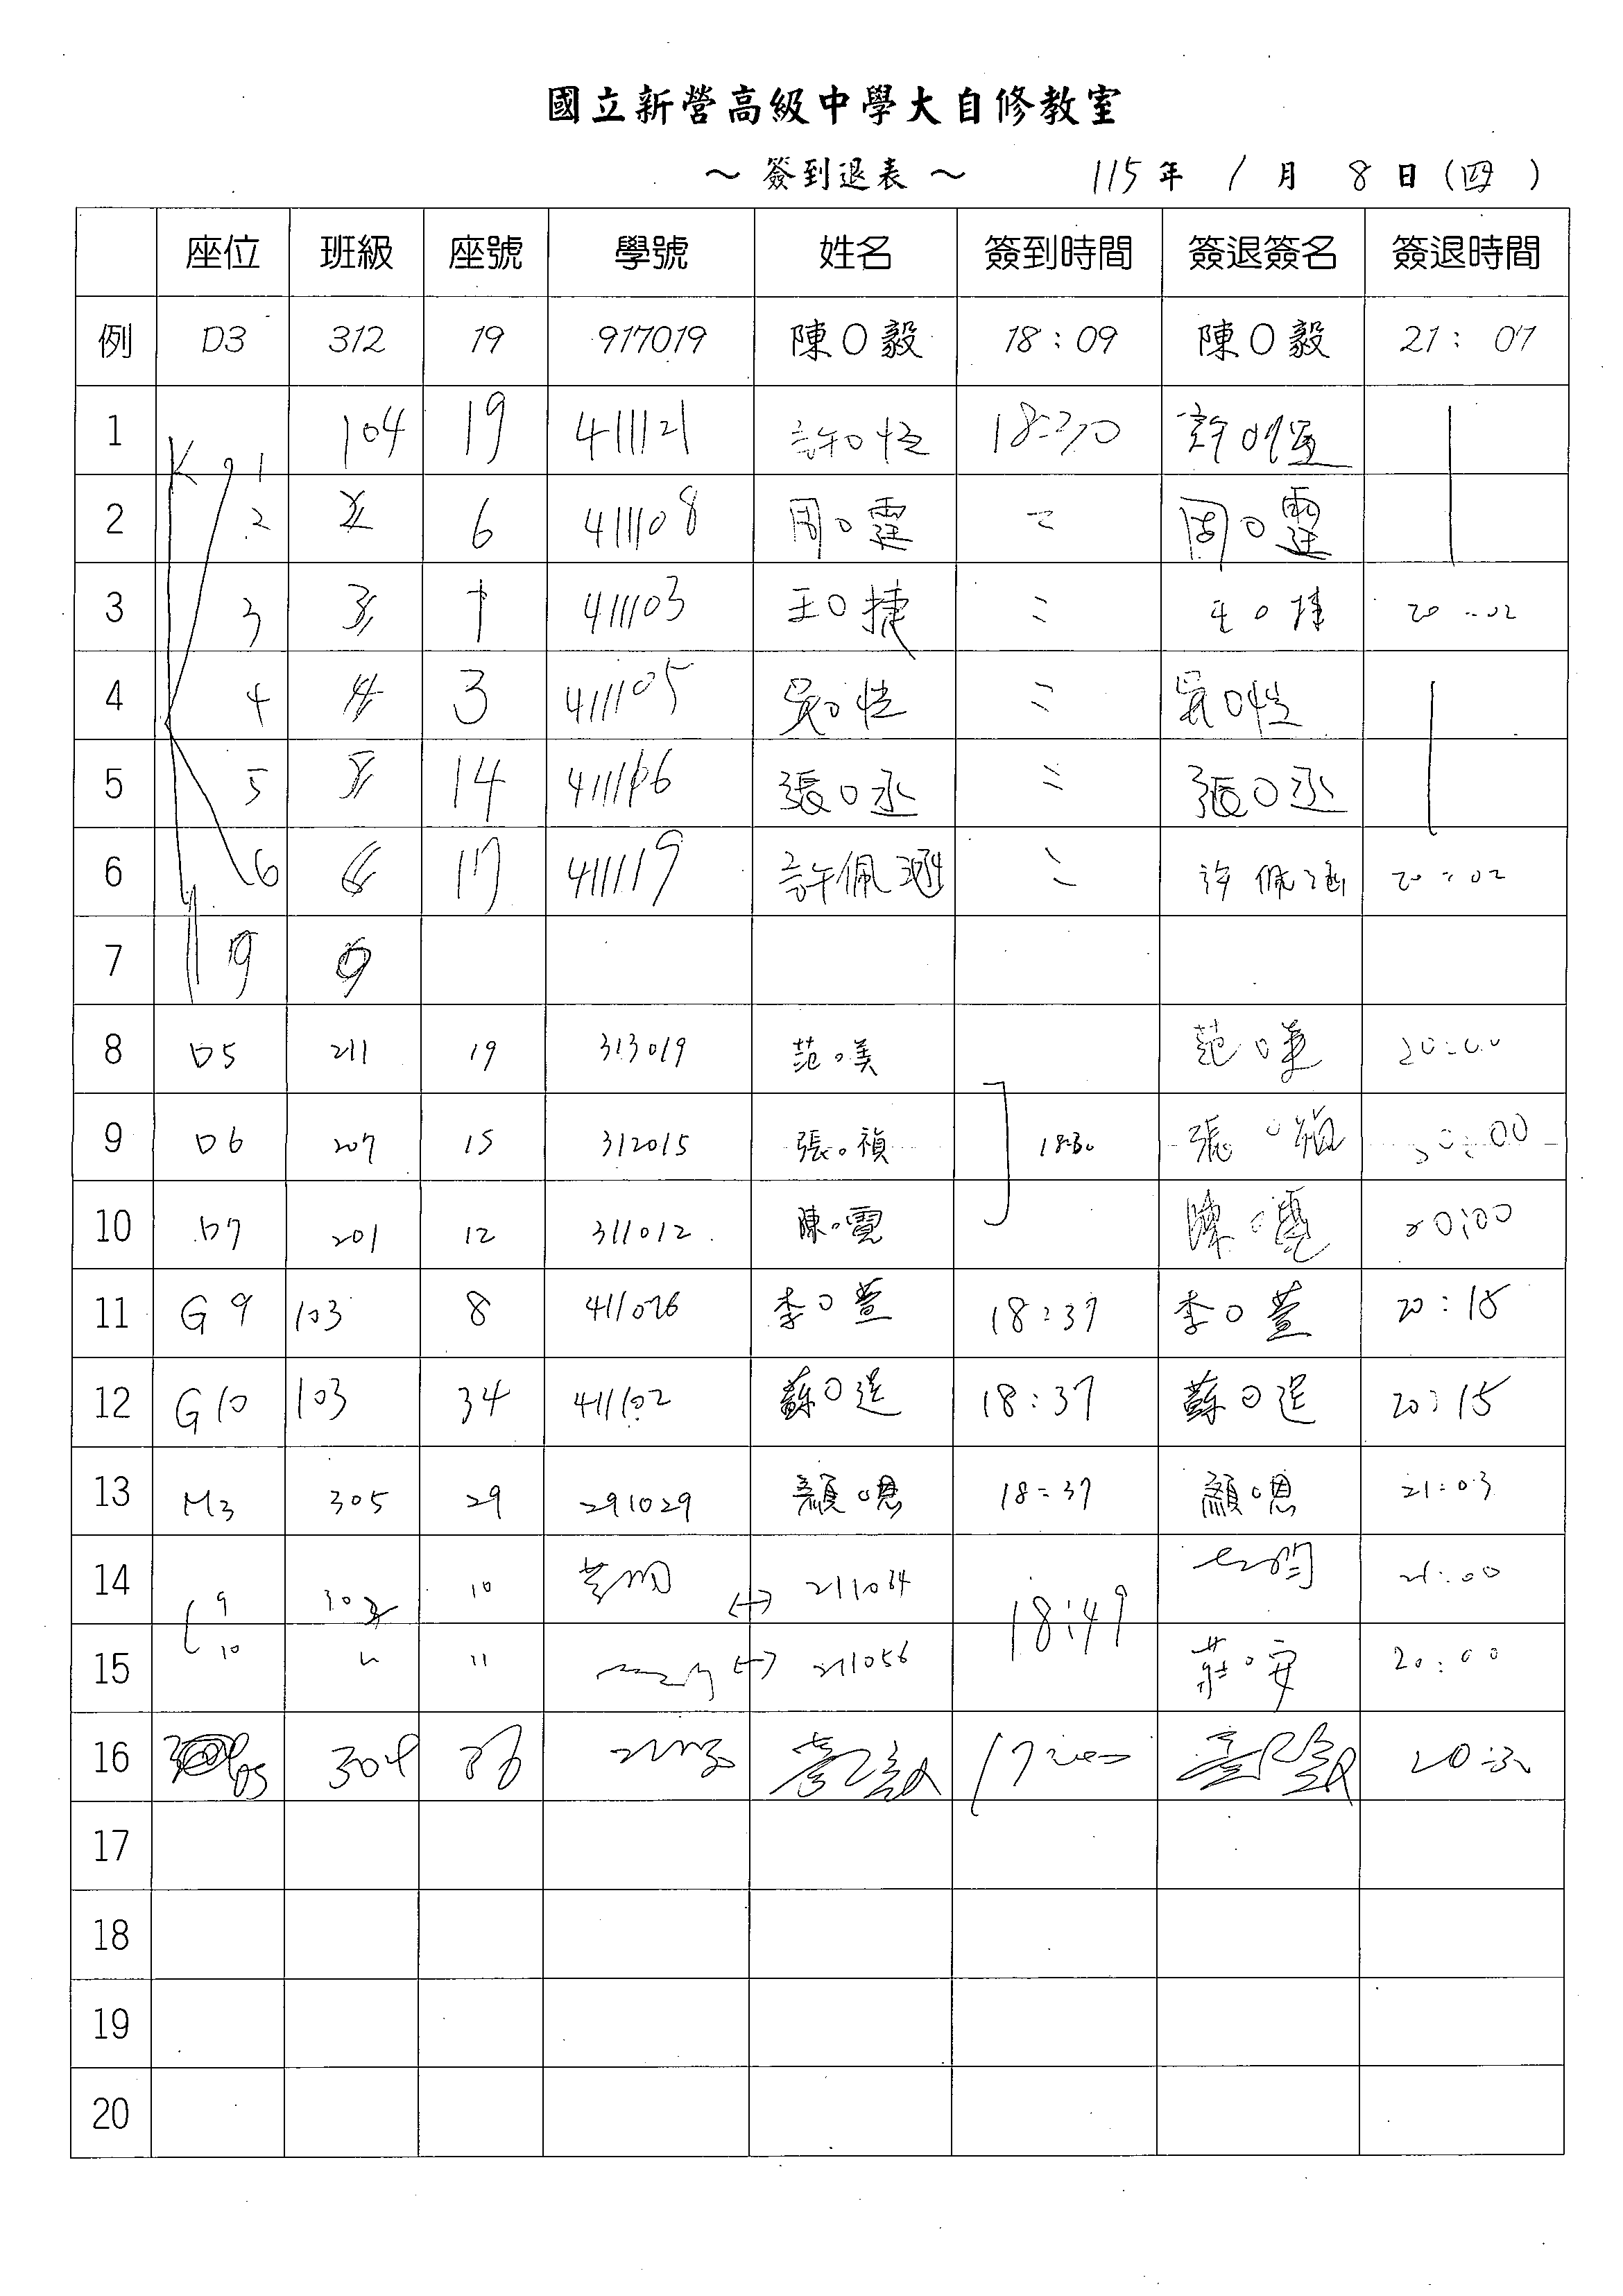 國立新營高級中學大自修教室
~ 簽到退表 ~ 115年 1月 8日(四)
座位 班級 座號 學號 姓名 簽到時間 簽退簽名 簽退時間
例 D3 312 19 917019 陳O毅 18:09 陳O毅 21:07
1 K 1 104 19 411121 許O恆 18:30 許O恆
2 2 6 411108 周O霆 周O霆
3 3 411103 王O捷 王O捷 20:02
4 4 3 411105 吳O恆 吳O恆
5 5 14 張O丞 張O丞
6 6 17 411119 許佩涵 許佩涵 20:02
7
8 D5 211 19 313019 范O美 范O美 20:00
9 D6 207 15 312015 張O禎 18:30 張O禎
10 D7 201 12 311012 陳O霓 陳O霓 20:00
11 G9 103 8 411076 李O萱 18:37 李O萱 20:15
12 G10 103 34 411102 蘇O 18:37 蘇O 20:15
13 M3 305 29 291029 顏O恩 18:37 顏O恩 21:03
14 9 10 211034 18:49 21:00
15 10 11 211056 莊O安 20:00
16 304
17
18
19
20